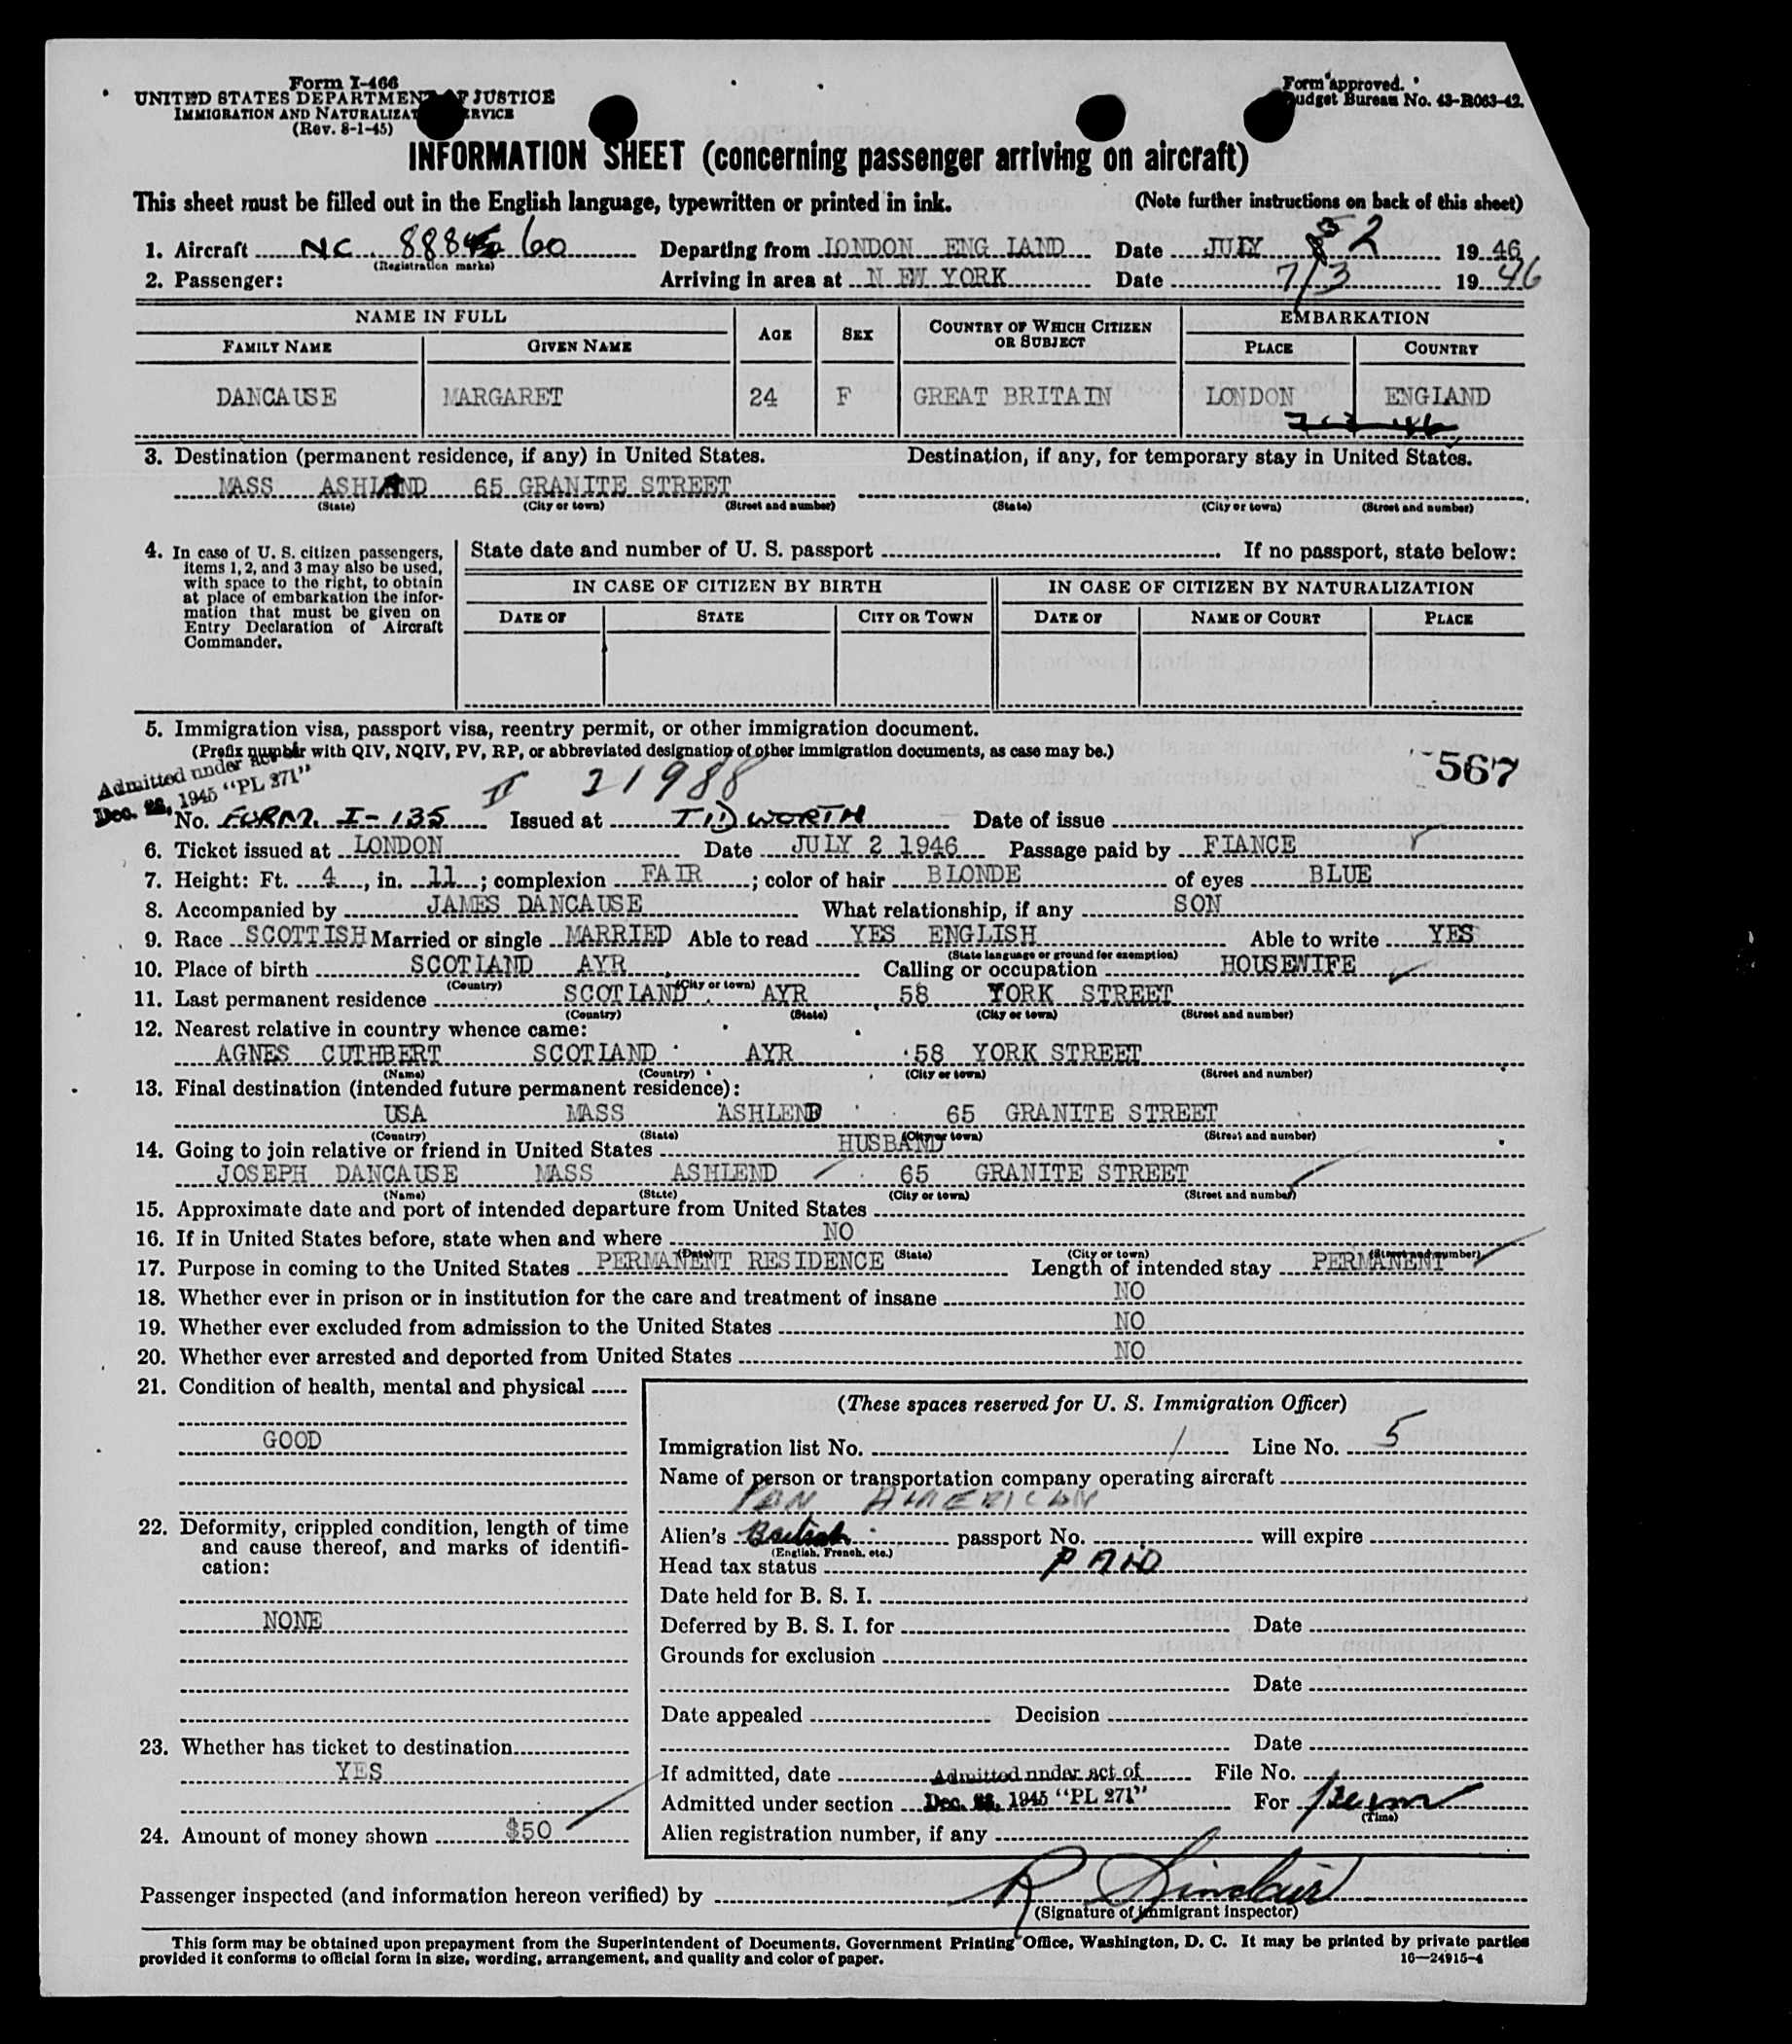 Form I-466
UNITED STATES DEPARTMENT OF JUSTICE
IMMIGRATION AND NATURALIZATION SERVICE
(Rev. 8-1-45)
Form approved.
Budget Bureau No. 43-R063-42.
INFORMATION SHEET (concerning passenger arriving on aircraft)
This sheet must be filled out in the English language, typewritten or printed in ink. (Note further instructions on back of this sheet)
1. Aircraft NC 888 60 Departing from LONDON ENGLAND Date JULY 2 1946
(Registration marks)
2. Passenger: Arriving in area at NEW YORK Date 7/3 1946
NAME IN FULL AGE SEX COUNTRY OF WHICH CITIZEN OR SUBJECT EMBARKATION
FAMILY NAME GIVEN NAME PLACE COUNTRY
DANCAUSE MARGARET 24 F GREAT BRITAIN LONDON ENGLAND
3. Destination (permanent residence, if any) in United States. Destination, if any, for temporary stay in United States.
MASS ASHLAND 65 GRANITE STREET
(State) (City or town) (Street and number) (State) (City or town) (Street and number)
4. In case of U. S. citizen passengers, items 1, 2, and 3 may also be used, with space to the right, to obtain at place of embarkation the information that must be given on Entry Declaration of Aircraft Commander.
State date and number of U. S. passport If no passport, state below:
IN CASE OF CITIZEN BY BIRTH IN CASE OF CITIZEN BY NATURALIZATION
DATE OF STATE CITY OR TOWN DATE OF NAME OF COURT PLACE
5. Immigration visa, passport visa, reentry permit, or other immigration document.
(Prefix number with QIV, NQIV, PV, RP, or abbreviated designation of other immigration documents, as case may be.)
567
Admitted under act of
Dec. 28, 1945 "PL 271"
21988
No. FORM I-135 Issued at TIDWORTH Date of issue
6. Ticket issued at LONDON Date JULY 2 1946 Passage paid by FIANCE
7. Height: Ft. 4, in. 11; complexion FAIR; color of hair BLONDE of eyes BLUE
8. Accompanied by JAMES DANCAUSE What relationship, if any SON
9. Race SCOTTISH Married or single MARRIED Able to read YES ENGLISH Able to write YES
(State language or ground for exemption)
10. Place of birth SCOTLAND AYR Calling or occupation HOUSEWIFE
(Country) (City or town)
11. Last permanent residence SCOTLAND AYR 58 YORK STREET
(Country) (State) (City or town) (Street and number)
12. Nearest relative in country whence came:
AGNES CUTHBERT SCOTLAND AYR 58 YORK STREET
(Name) (Country) (City or town) (Street and number)
13. Final destination (intended future permanent residence):
USA MASS ASHLEND 65 GRANITE STREET
(Country) (State) (City or town) (Street and number)
14. Going to join relative or friend in United States HUSBAND
JOSEPH DANCAUSE MASS ASHLEND 65 GRANITE STREET
(Name) (State) (City or town) (Street and number)
15. Approximate date and port of intended departure from United States
16. If in United States before, state when and where NO
(Date) (State) (City or town) (Street and number)
17. Purpose in coming to the United States PERMANENT RESIDENCE Length of intended stay PERMANENT
18. Whether ever in prison or in institution for the care and treatment of insane NO
19. Whether ever excluded from admission to the United States NO
20. Whether ever arrested and deported from United States NO
21. Condition of health, mental and physical
GOOD
22. Deformity, crippled condition, length of time
and cause thereof, and marks of identifi-
cation:
NONE
23. Whether has ticket to destination
YES
24. Amount of money shown $50
(These spaces reserved for U. S. Immigration Officer)
Immigration list No. 1 Line No. 5
Name of person or transportation company operating aircraft
PAN AMERICAN
Alien's British passport No. will expire
(English, French, etc.)
Head tax status PAID
Date held for B. S. I.
Deferred by B. S. I. for Date
Grounds for exclusion
Date
Date appealed Decision
Date
If admitted, date Admitted under act of File No.
Admitted under section Dec. 28, 1945 "PL 271" For Perm
(Time)
Alien registration number, if any
Passenger inspected (and information hereon verified) by R Sinclair
(Signature of immigrant inspector)
This form may be obtained upon prepayment from the Superintendent of Documents, Government Printing Office, Washington, D. C. It may be printed by private parties
provided it conforms to official form in size, wording, arrangement, and quality and color of paper. 16—24915-4